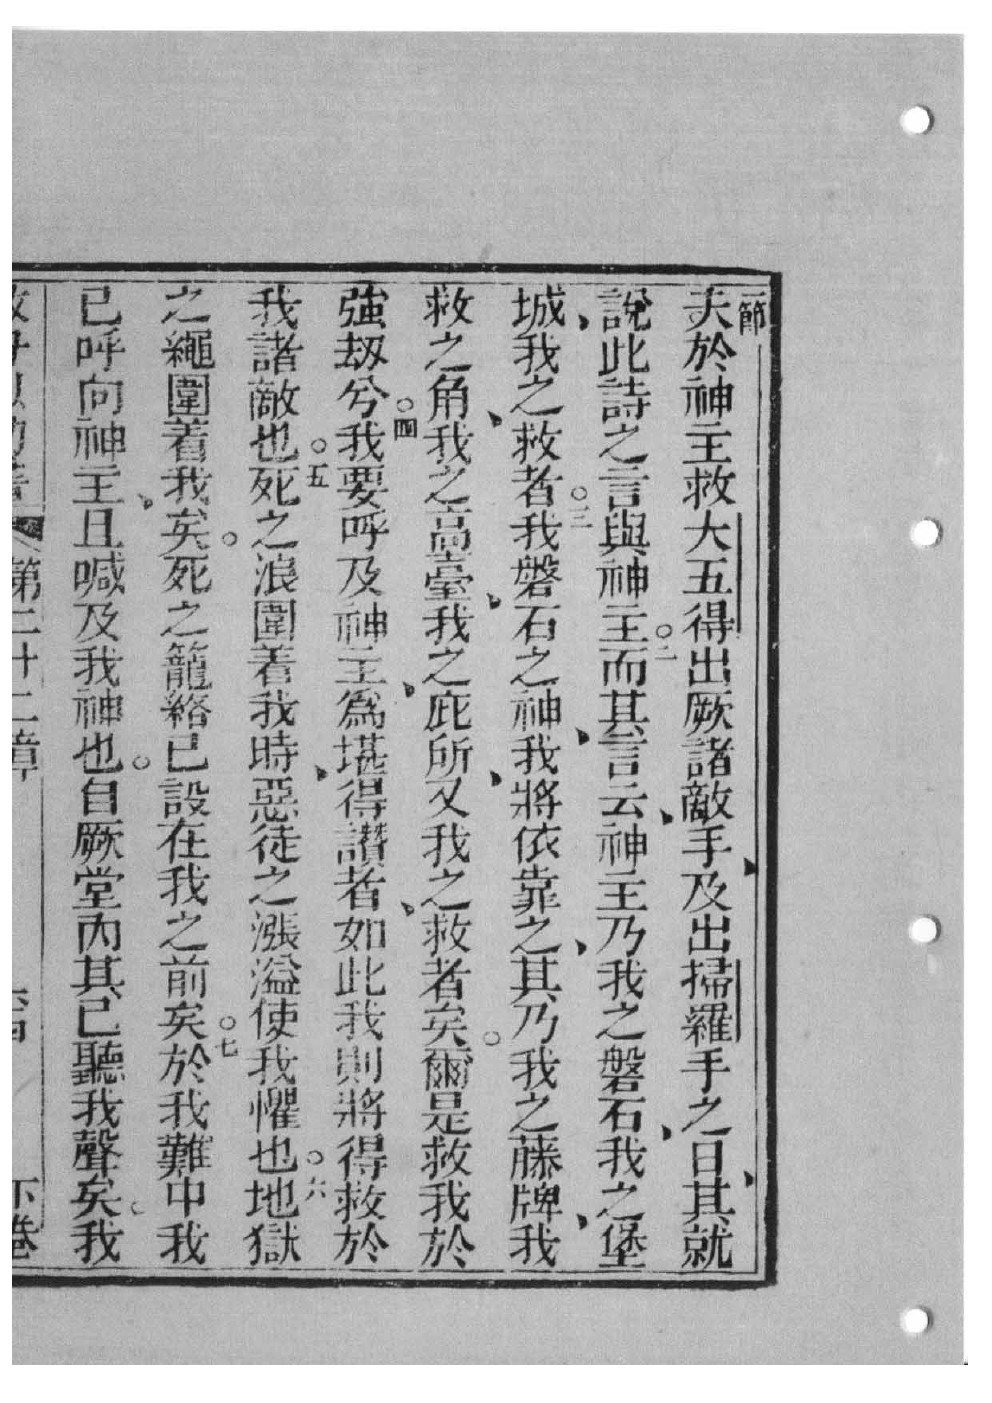 一節
夫於神主救大五得出厥諸敵手、及出掃羅手之日、其就
說此詩之言與神主。二而其言云、神主乃我之磐石、我之堡
城、我之救者。三我磐石之神、我將依靠之、其乃我之藤牌、我
救之角、我之高臺、我之庇所、又我之救者矣。爾是救我於
強劫兮。四我要呼及神主、爲堪得讚者、如此我則將得救於
我諸敵也。五死之浪圍着我時、惡徒之漲溢使我懼也。六地獄
之繩圍着我矣。死之籠絡已設在我之前矣。七於我難中我
已呼向神主、且喊及我神也。自厥堂內其已聽我聲矣。我
第二十二章 下卷